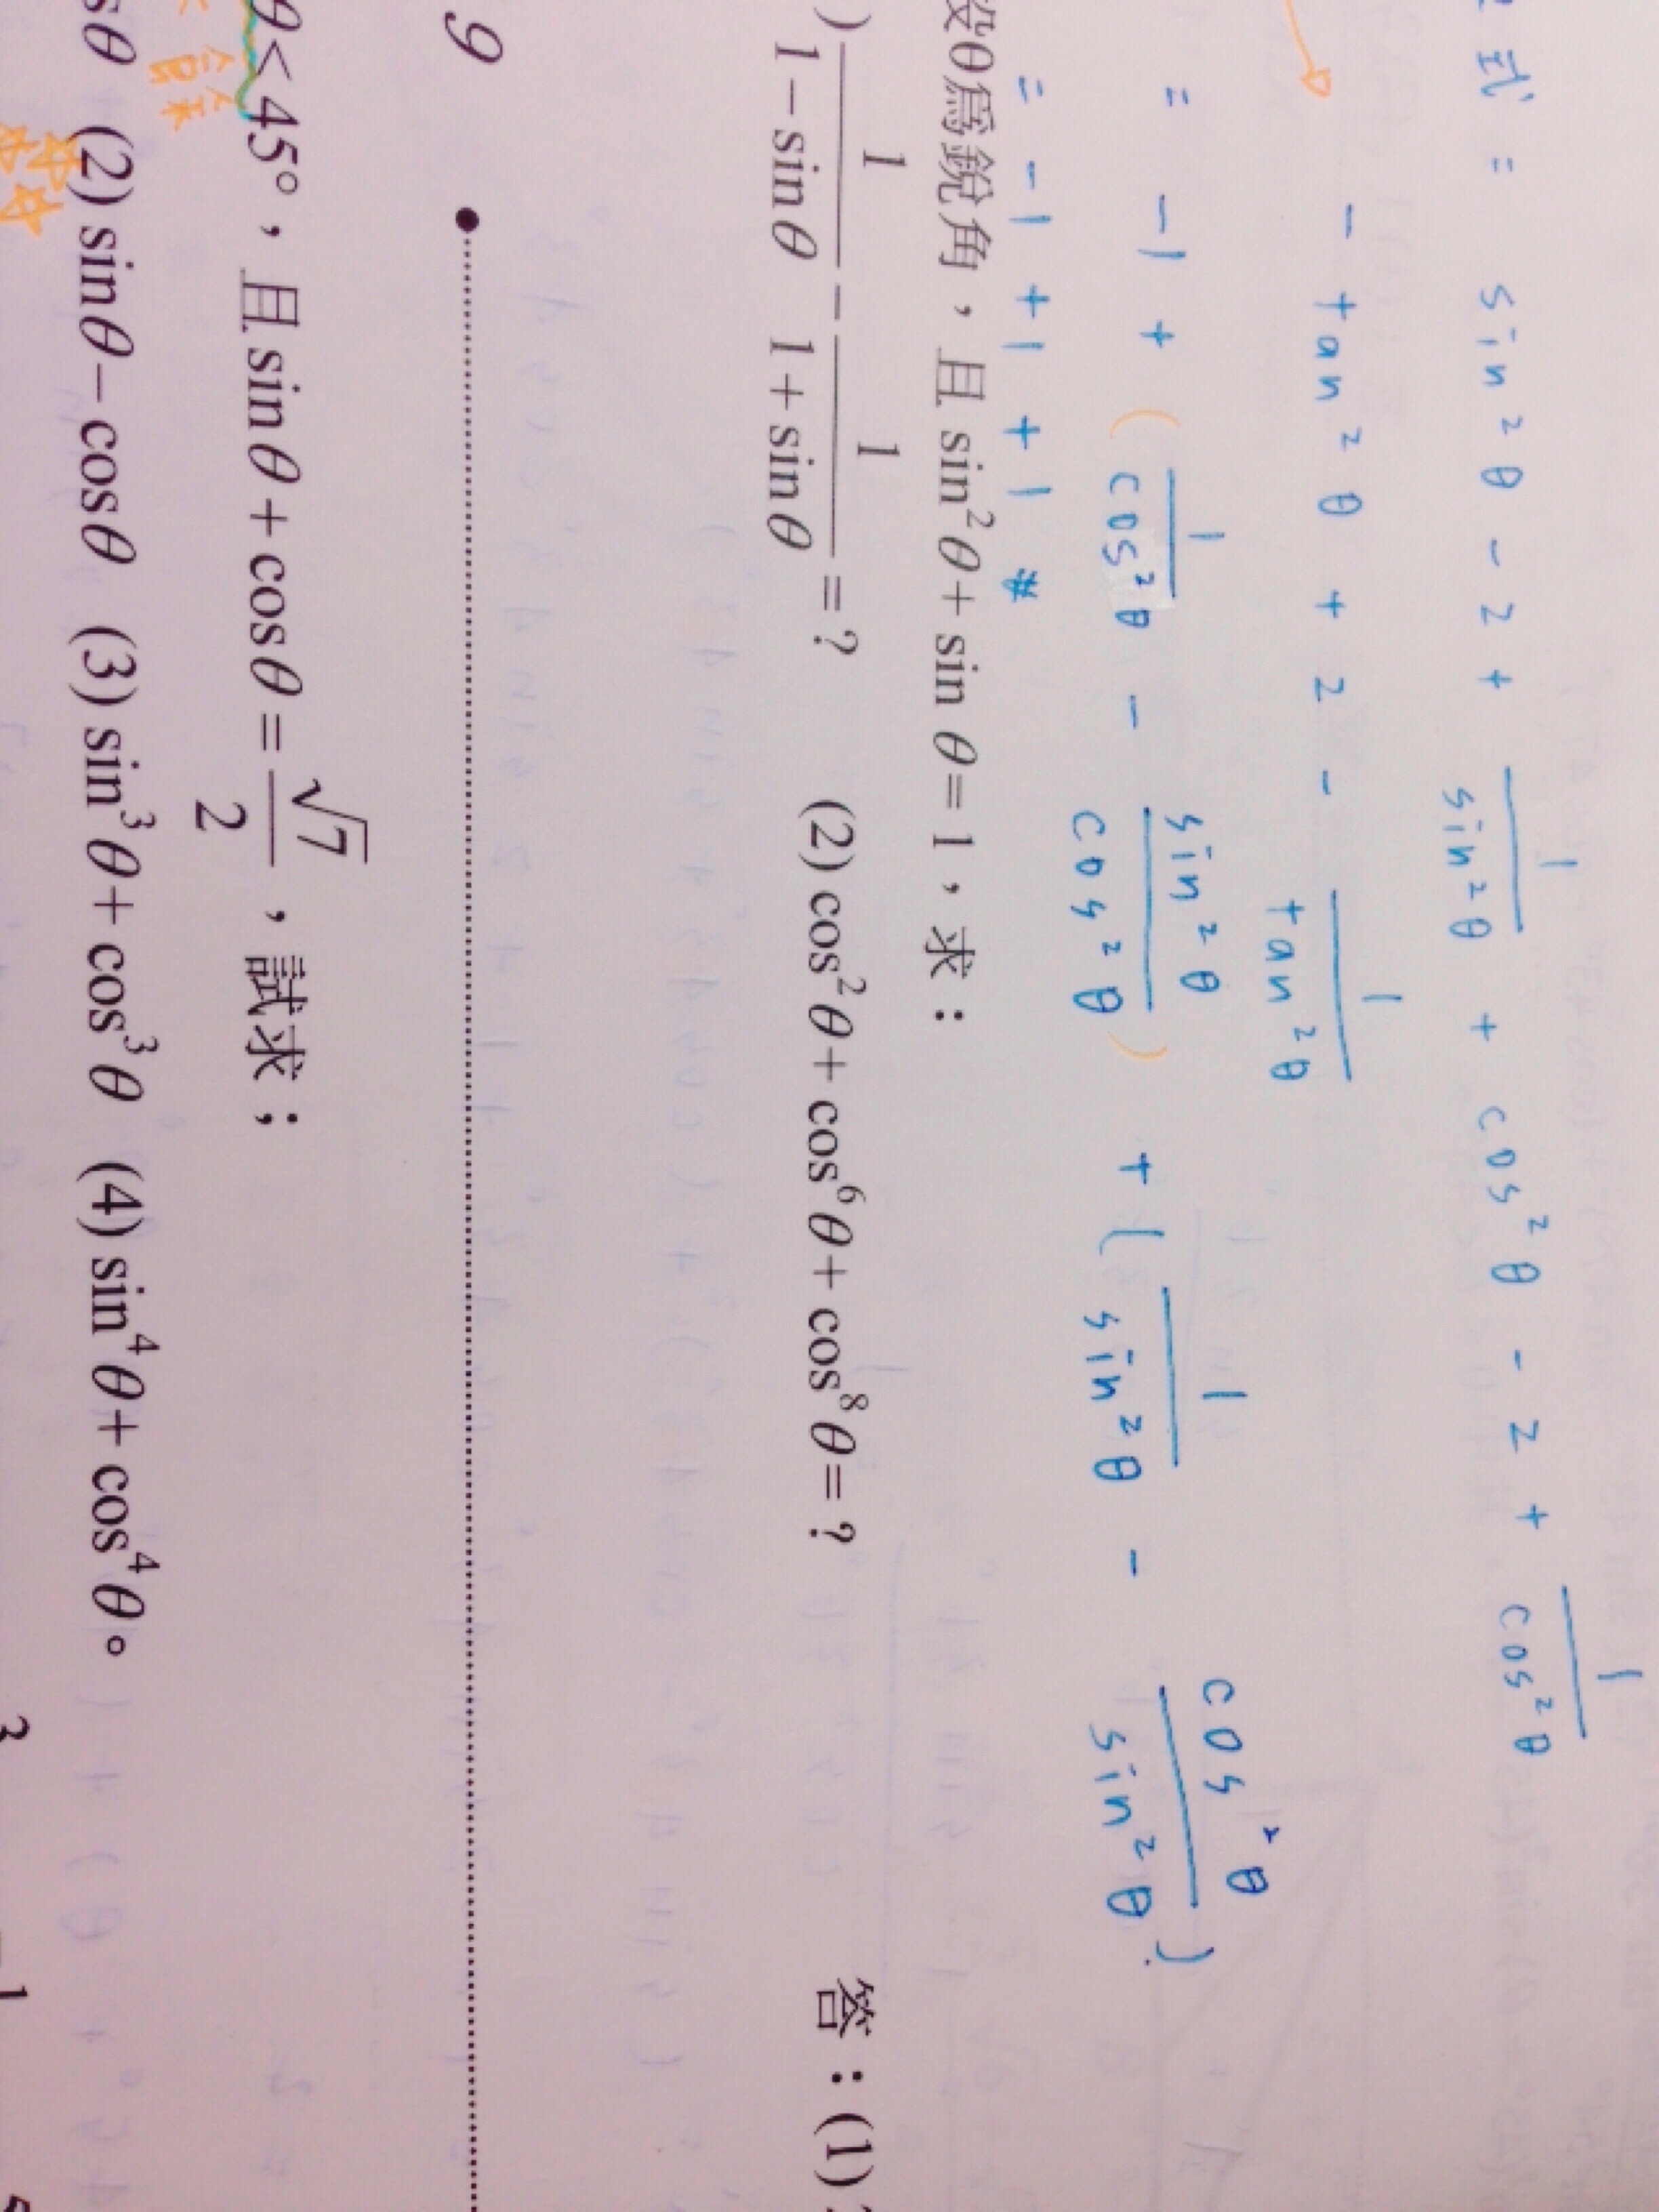 式 = sin²θ - 2 + 1/sin²θ + cos²θ - 2 + 1/cos²θ
- tan²θ + 2 - 1/tan²θ
= -1 + ( 1/cos²θ - sin²θ/cos²θ ) + ( 1/sin²θ - cos²θ/sin²θ )
= -1 +1 +1 #
設θ爲銳角，且 sin²θ+ sin θ=1，求：
) 1/(1−sinθ) − 1/(1+sinθ) =？ (2) cos²θ+ cos⁶θ+ cos⁸θ=？ 答：(1)
9
θ<45°，且 sinθ+cosθ=√7/2，試求；
sθ (2) sinθ−cosθ (3) sin³θ+cos³θ (4) sin⁴θ+cos⁴θ。